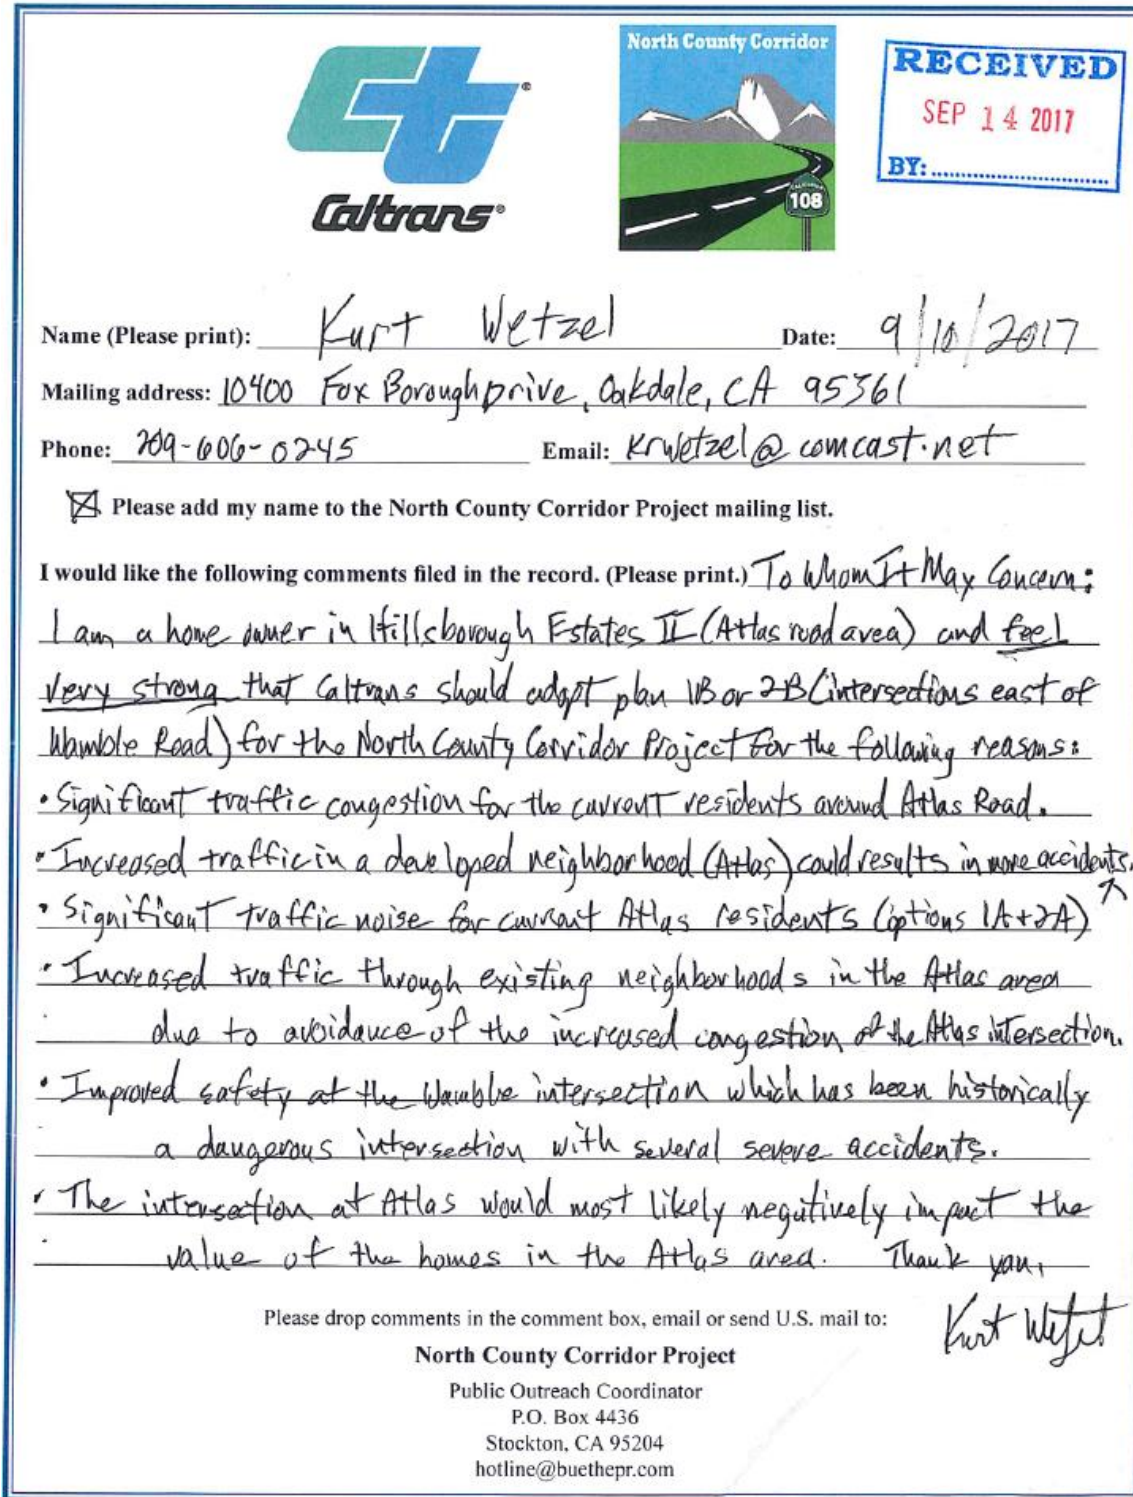 Caltrans®
North County Corridor
CALIFORNIA
108
RECEIVED
SEP 14 2017
BY:
Name (Please print): Kurt Wetzel Date: 9/10/2017
Mailing address: 10400 Fox Borough Drive, Oakdale, CA 95361
Phone: 209-606-0245 Email: krwetzel@comcast.net
Please add my name to the North County Corridor Project mailing list.
I would like the following comments filed in the record. (Please print.) To Whom It May Concern:
I am a home owner in Hillsborough Estates II (Atlas road area) and feel
very strong that Caltrans should adopt plan 1B or 2-B (intersections east of
Wamble Road) for the North County Corridor Project for the following reasons:
• Significant traffic congestion for the current residents around Atlas Road.
• Increased traffic in a developed neighborhood (Atlas) could results in more accidents.
• Significant traffic noise for current Atlas residents (options 1A+2A)
• Increased traffic through existing neighborhoods in the Atlas area
due to avoidance of the increased congestion of the Atlas intersection.
• Improved safety at the Wamble intersection which has been historically
a dangerous intersection with several severe accidents.
• The intersection at Atlas would most likely negatively impact the
value of the homes in the Atlas area. Thank you,
Kurt Wetzel
Please drop comments in the comment box, email or send U.S. mail to:
North County Corridor Project
Public Outreach Coordinator
P.O. Box 4436
Stockton, CA 95204
hotline@buethepr.com